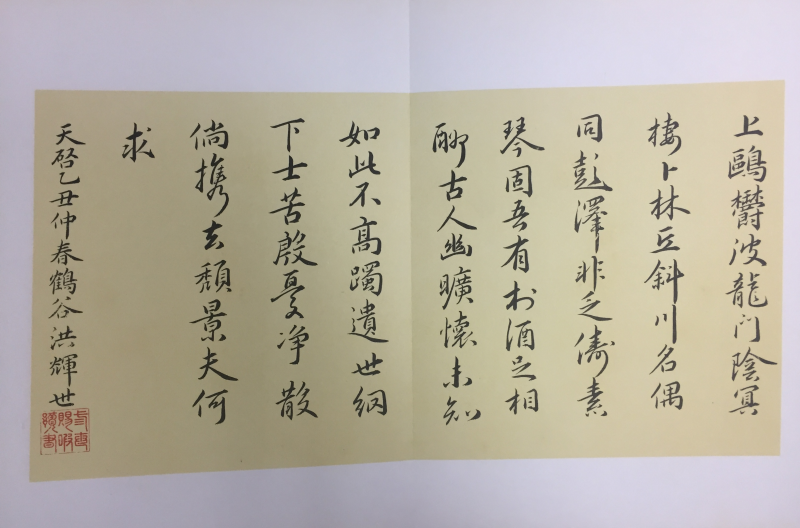 上鷗欝波龍门陰冥
棲卜林丘斜川名偶
同彭澤非乏儔素
琴固吾有村酒足相
酬古人幽曠懷未知
如此不高躅遺世網
下士苦殷憂净散
倘携去頹景夫何
求
天啓乙丑仲春鶴谷洪輝世